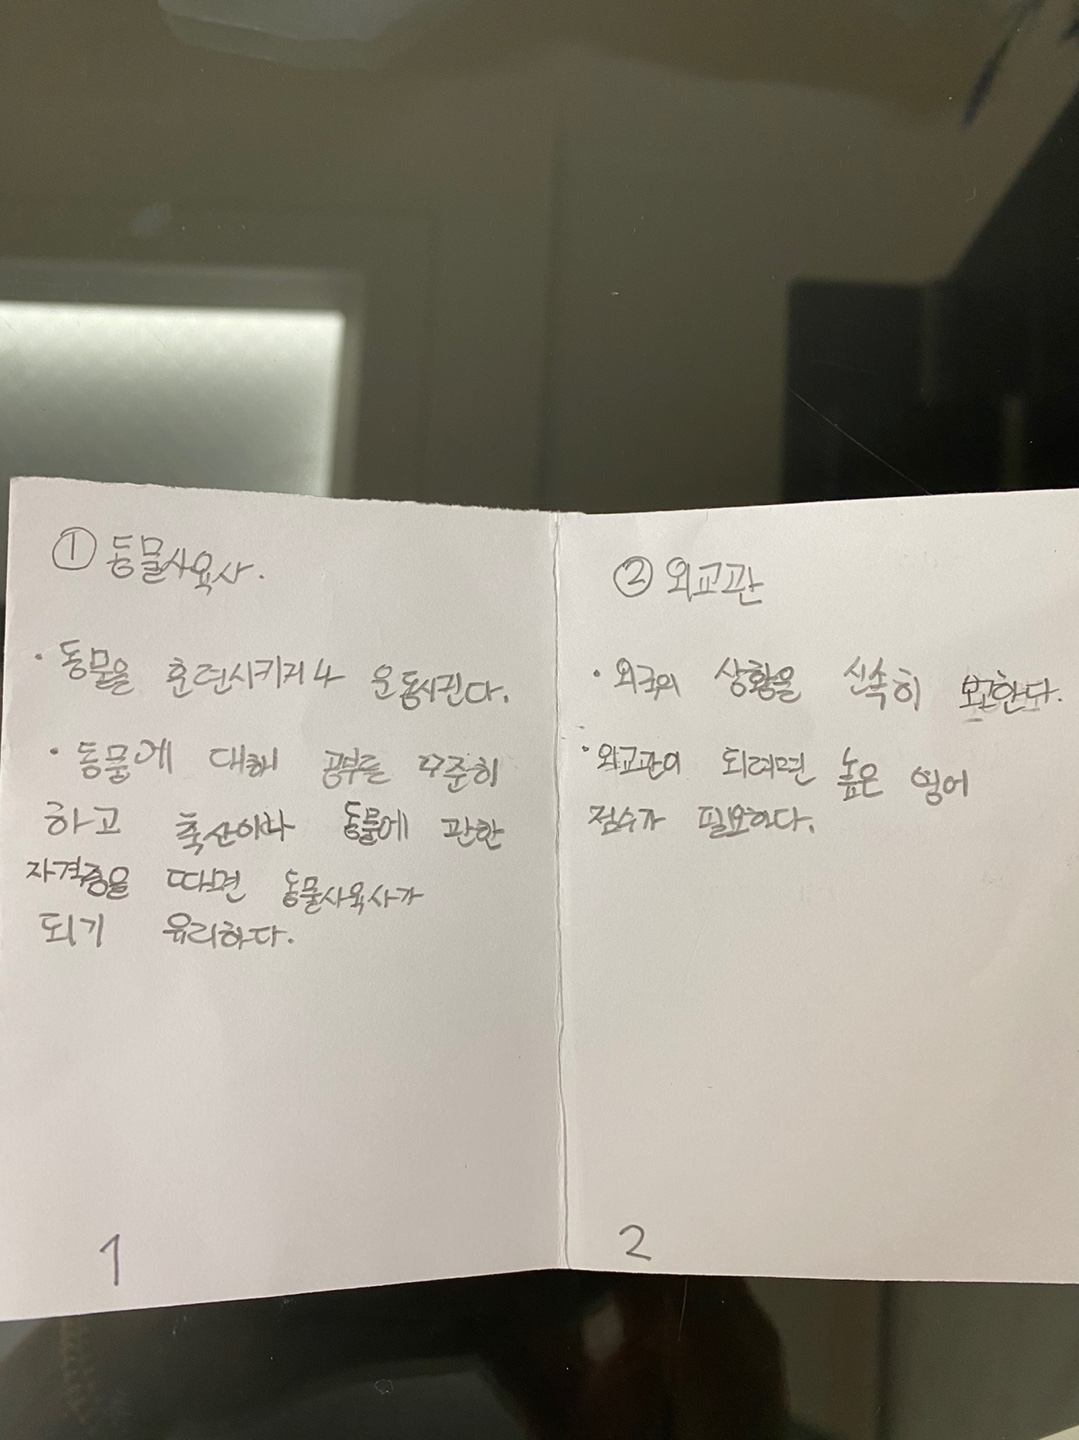 ① 동물사육사.
· 동물을 훈련시키거나 운동시킨다.
· 동물에 대해 공부를 꾸준히
하고 축산이나 동물에 관한
자격증을 따면 동물사육사가
되기 유리하다.
1
② 외교관
· 외국의 상황을 신속히 보고한다.
· 외교관이 되려면 높은 영어
점수가 필요하다.
2